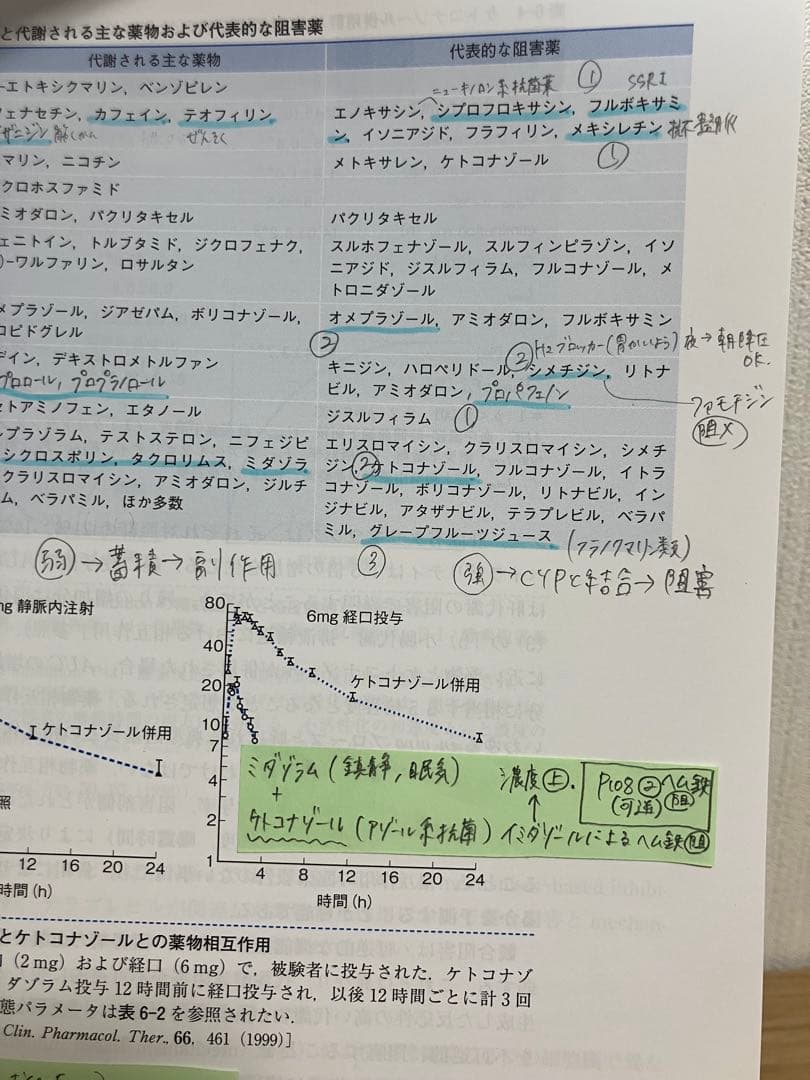 と代謝される主な薬物および代表的な阻害薬
代謝される主な薬物
代表的な阻害薬
-エトキシクマリン，ベンゾピレン
ニューキノロン系抗菌薬 ① SSRI
フェナセチン，カフェイン，テオフィリン
エノキサシン，シプロフロキサシン，フルボキサミ
ぜんそく
ン，イソニアジド，フラフィリン，メキシレチン
マリン，ニコチン
メトキサレン，ケトコナゾール ①
クロホスファミド
ミオダロン，パクリタキセル
パクリタキセル
ェニトイン，トルブタミド，ジクロフェナク，
スルホフェナゾール，スルフィンピラゾン，イソ
)-ワルファリン，ロサルタン
ニアジド，ジスルフィラム，フルコナゾール，メ
トロニダゾール
メプラゾール，ジアゼパム，ボリコナゾール，
オメプラゾール，アミオダロン，フルボキサミン
ロピドグレル
② H2ブロッカー(胃かいよう) 夜→朝降圧
OK.
デイン，デキストロメトルファン
②
キニジン，ハロペリドール，シメチジン，リトナ
プロロール，プロプラノロール
ビル，アミオダロン，プロパフェノン
ファモチジン
阻×
セトアミノフェン，エタノール
ジスルフィラム ①
ルプラゾラム，テストステロン，ニフェジピ
エリスロマイシン，クラリスロマイシン，シメチ
シクロスポリン，タクロリムス，ミダゾラ
ジン，②ケトコナゾール，フルコナゾール，イトラ
クラリスロマイシン，アミオダロン，ジルチ
コナゾール，ボリコナゾール，リトナビル，イン
ム，ベラパミル，ほか多数
ジナビル，アタザナビル，テラプレビル，ベラパ
ミル，グレープフルーツジュース
(フラノクマリン類)
弱→蓄積→副作用
③
強→CYPと結合→阻害
mg 静脈内注射
80
6mg 経口投与
40
ケトコナゾール併用
20
ケトコナゾール併用
10
7
4
2
1
ミダゾラム (鎮静，眠気)
+
ケトコナゾール (アゾール系抗菌)
濃度上.
↑
イミダゾールによるヘム鉄阻
P108②ヘム鉄
(可逆)阻
照
12 16 20 24
4 8 12 16 20 24
時間(h)
時間(h)
とケトコナゾールとの薬物相互作用
(2mg) および経口 (6mg) で，被験者に投与された．ケトコナゾ
ダゾラム投与 12 時間前に経口投与され，以後 12 時間ごとに計 3 回
態パラメータは表 6-2 を参照されたい．
Clin. Pharmacol. Ther., 66, 461 (1999)]